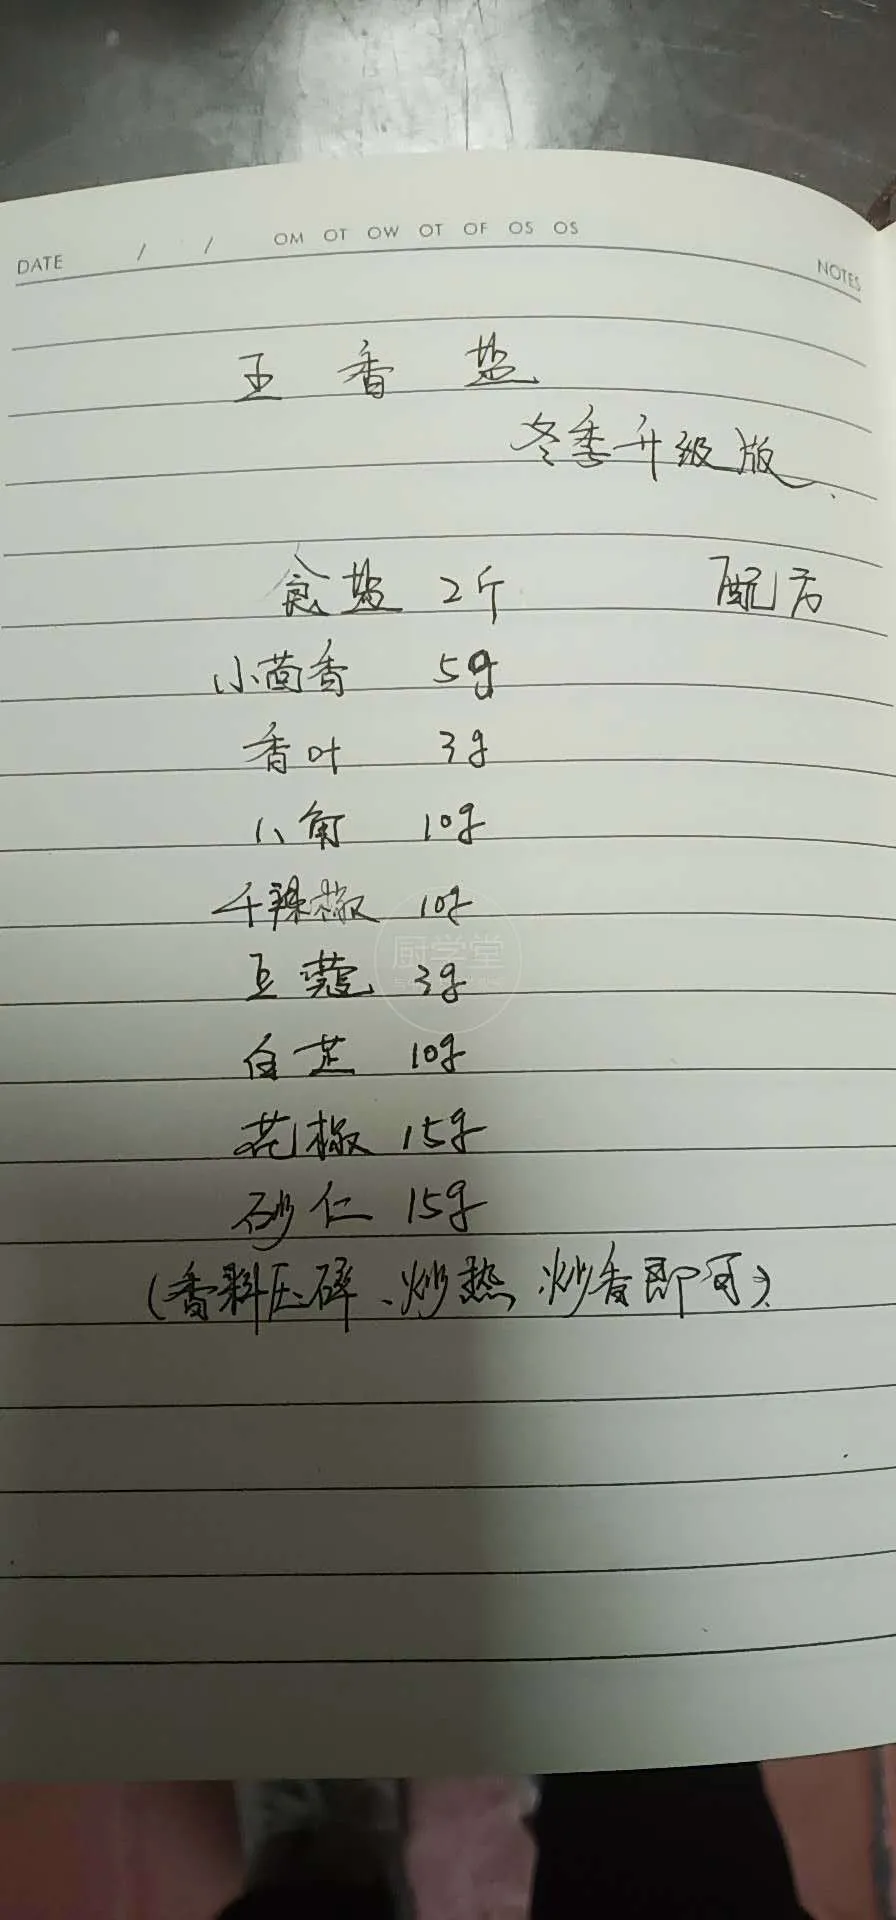 DATE / / OM OT OW OT OF OS OS NOTES
五香盐
冬季升级版
食盐 2斤 配方
小茴香 5g
香叶 3g
八角 10g
干辣椒 10g
厨学堂
豆蔻 3g
白芷 10g
花椒 15g
砂仁 15g
(香料压碎、炒热,炒香即可)